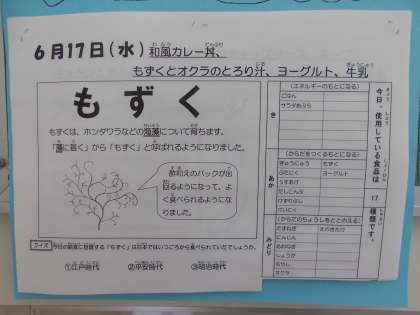 6月17日(水) 和風カレー丼、
もずくとオクラのとろり汁、ヨーグルト、牛乳
もずく
もずくは、ホンダワラなどの海藻について育ちます。
「藻に着く」から「もずく」と呼ばれるようになりました。
酢和えのパックが出
回るようになって、よ
く食べられるようにな
りました。
クイズ 今日の給食に登場する「もずく」は日本ではいつごろから食べられていたでしょうか。
①江戸時代 ②平安時代 ③明治時代
今日、使用している食品は 17 種類です。
き
(エネルギーのもとになる)
ごはん
サラダあぶら
あか
(からだをつくるもとになる)
ぎゅうにゅう もずく
ぶたにく ヨーグルト
うすあげ
だしこんぶ
けずりぶし
みどり
(からだのちょうしをととのえる)
たまねぎ えのきたけ
にんじん
しょうが
オクラ